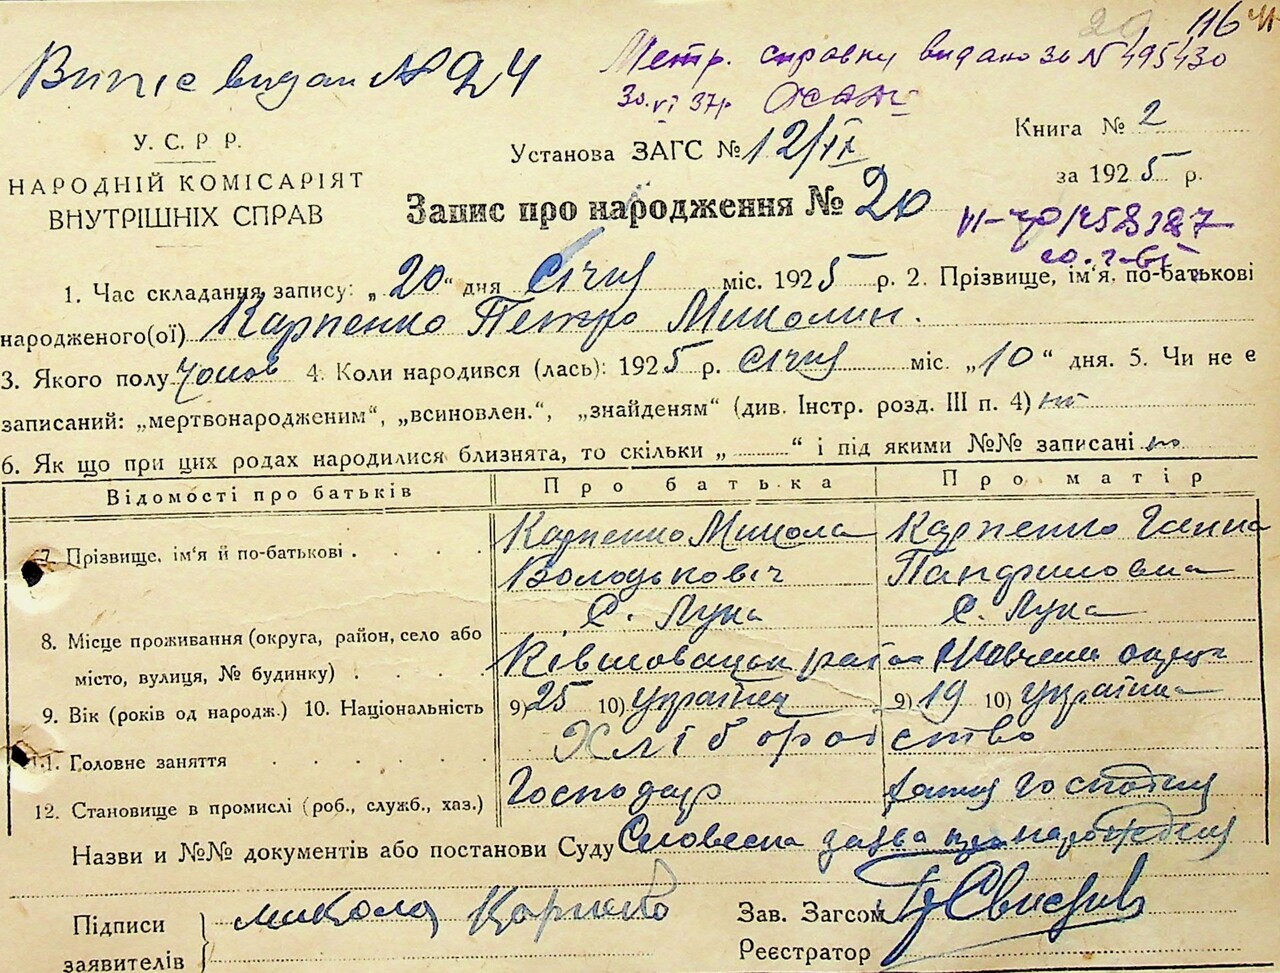 116
Випис видан № 24
Метр. справку видано за № 495430
30.VI 37р
У. С. Р. Р.
НАРОДНІЙ КОМІСАРІЯТ
ВНУТРІШНІХ СПРАВ
Установа ЗАГС № 12/
Книга № 2
за 1925 р.
Запис про народження № 20
1. Час складання запису: „20“ дня Січня міс. 1925 р. 2. Прізвище, ім'я, по-батькові
народженого(ої) Карпенко Петро Миколин.
3. Якого полу чолов 4. Коли народився (лась): 1925 р. Січня міс. „10“ дня. 5. Чи не є
записаний: „мертвонародженим“, „всиновлен.“, „знайденям“ (див. Інстр. розд. III п. 4) ні
6. Як що при цих родах народилися близнята, то скільки „ “ і під якими №№ записані
Відомості про батьків Про батька Про матір
7. Прізвище, ім'я й по-батькові Карпенко Микола Карпенко Ганна
Володькович Панфиловна
С. Лука С. Лука
8. Місце проживання (округа, район, село або
місто, вулиця, № будинку) район
9. Вік (років од народж.) 10. Національність 9) 25 10) Українец 9) 19 10) Українка
11. Головне заняття Хліборобство
12. Становище в промислі (роб., служб., хаз.) Господар
Назви и №№ документів або постанови Суду Словесна заява про народження
Підписи
заявителів
Микола Карпенко
Зав. Загсом
Реєстратор